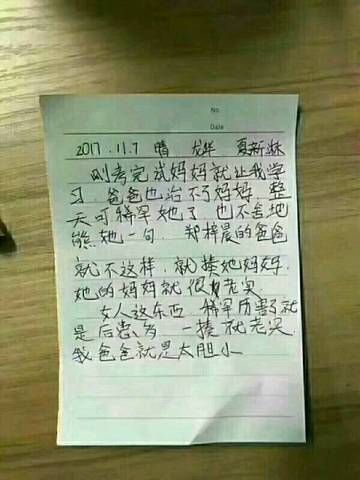 No.
Date
2017.11.7 晴 夏新
刚考完试妈妈就让我学
习.爸爸也治不了妈妈.整
天可稀军她了.也不舍地
熊她一句.郑梓晨的爸爸
就不这样.就揍她妈妈.
她的妈妈就很老实.
女人这东西.稀军厉害了就
是后患.多 一揍就老实.
我爸爸就是太胆小